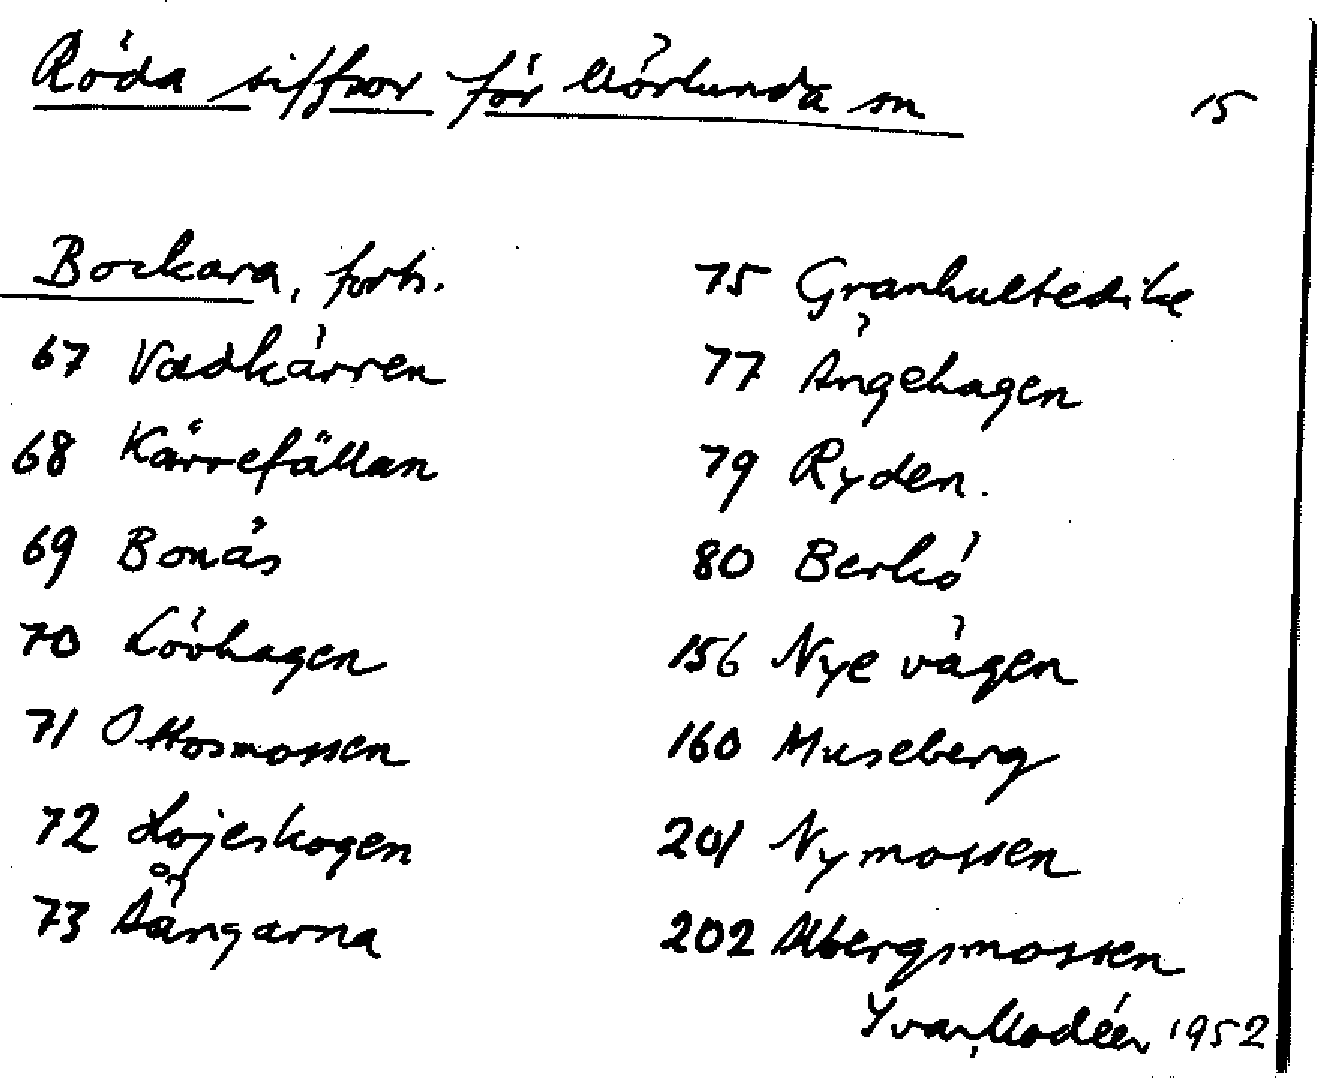 Röda siffror för Mörlunda sn
15
Bockara, forts.
67 Vadkärren
68 Kärrefällan
69 Bonäs
70 Lövhagen
71 Ottosmossen
72 Lojeskogen
73 Aängarna
75 Granhultedike
77 Ängehagen
79 Ryden.
80 Berkö
156 Nye vägen
160 Museberg
201 Nymossen
202 Ulbergsmossen
Yvar Modéer 1952